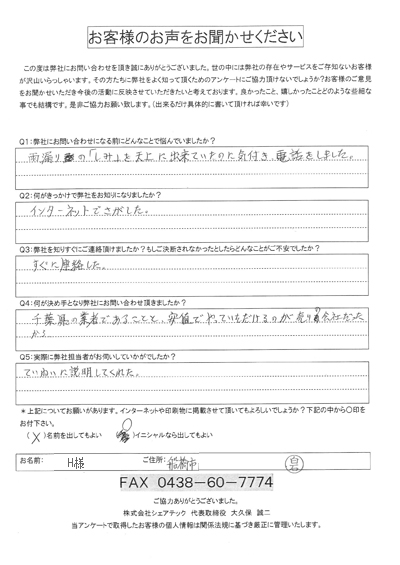 お客様のお声をお聞かせください
この度は弊社にお問い合わせを頂き誠にありがとうございます。世の中には弊社の存在やサービスをご存知ないお客様
が沢山いらっしゃいます。その方たちに弊社をよく知って頂くためのアンケートにご協力頂けないでしょうか？お客様のご意見
をお聞かせいただき今後の活動に反映させていただきたいと考えております。良かったこと、嬉しかったことどのような些細な
事でも結構です。是非ご協力お願い致します。（出来るだけ具体的に書いて頂ければ幸いです）
Q1：弊社にお問い合わせになる前にどんなことで悩んでいましたか？
雨漏りの「しみ」を天上に出来ていたのに気付き、電話をしました。
Q2：何がきっかけで弊社をお知りになりましたか？
インターネットでさがした。
Q3：弊社を知りすぐにご連絡頂けましたか？もしご決断されなかったとしたらどんなことがご不安でしたか？
すぐに連絡した。
Q4：何が決め手となり弊社にお問い合わせ頂きましたか？
千葉県の業者であることと、安価でやっていただけるのが売りの会社だった
から
Q5：実際に弊社担当者がお伺いしていかがでしたか？
ていねいに説明してくれた。
＊上記についてお願いがあります。インターネットや印刷物に掲載させて頂いてもよろしいでしょうか？下記の中から〇印を
お付下さい。
（ × ）名前を出してもよい （ 〇 ）イニシャルなら出してもよい
お名前： H様 ご住所： 船橋市
FAX 0438-60-7774
ご協力ありがとうございました。
株式会社シェアテック 代表取締役 大久保 誠二
当アンケートで取得したお客様の個人情報は関係法規に基づき厳正に管理いたします。